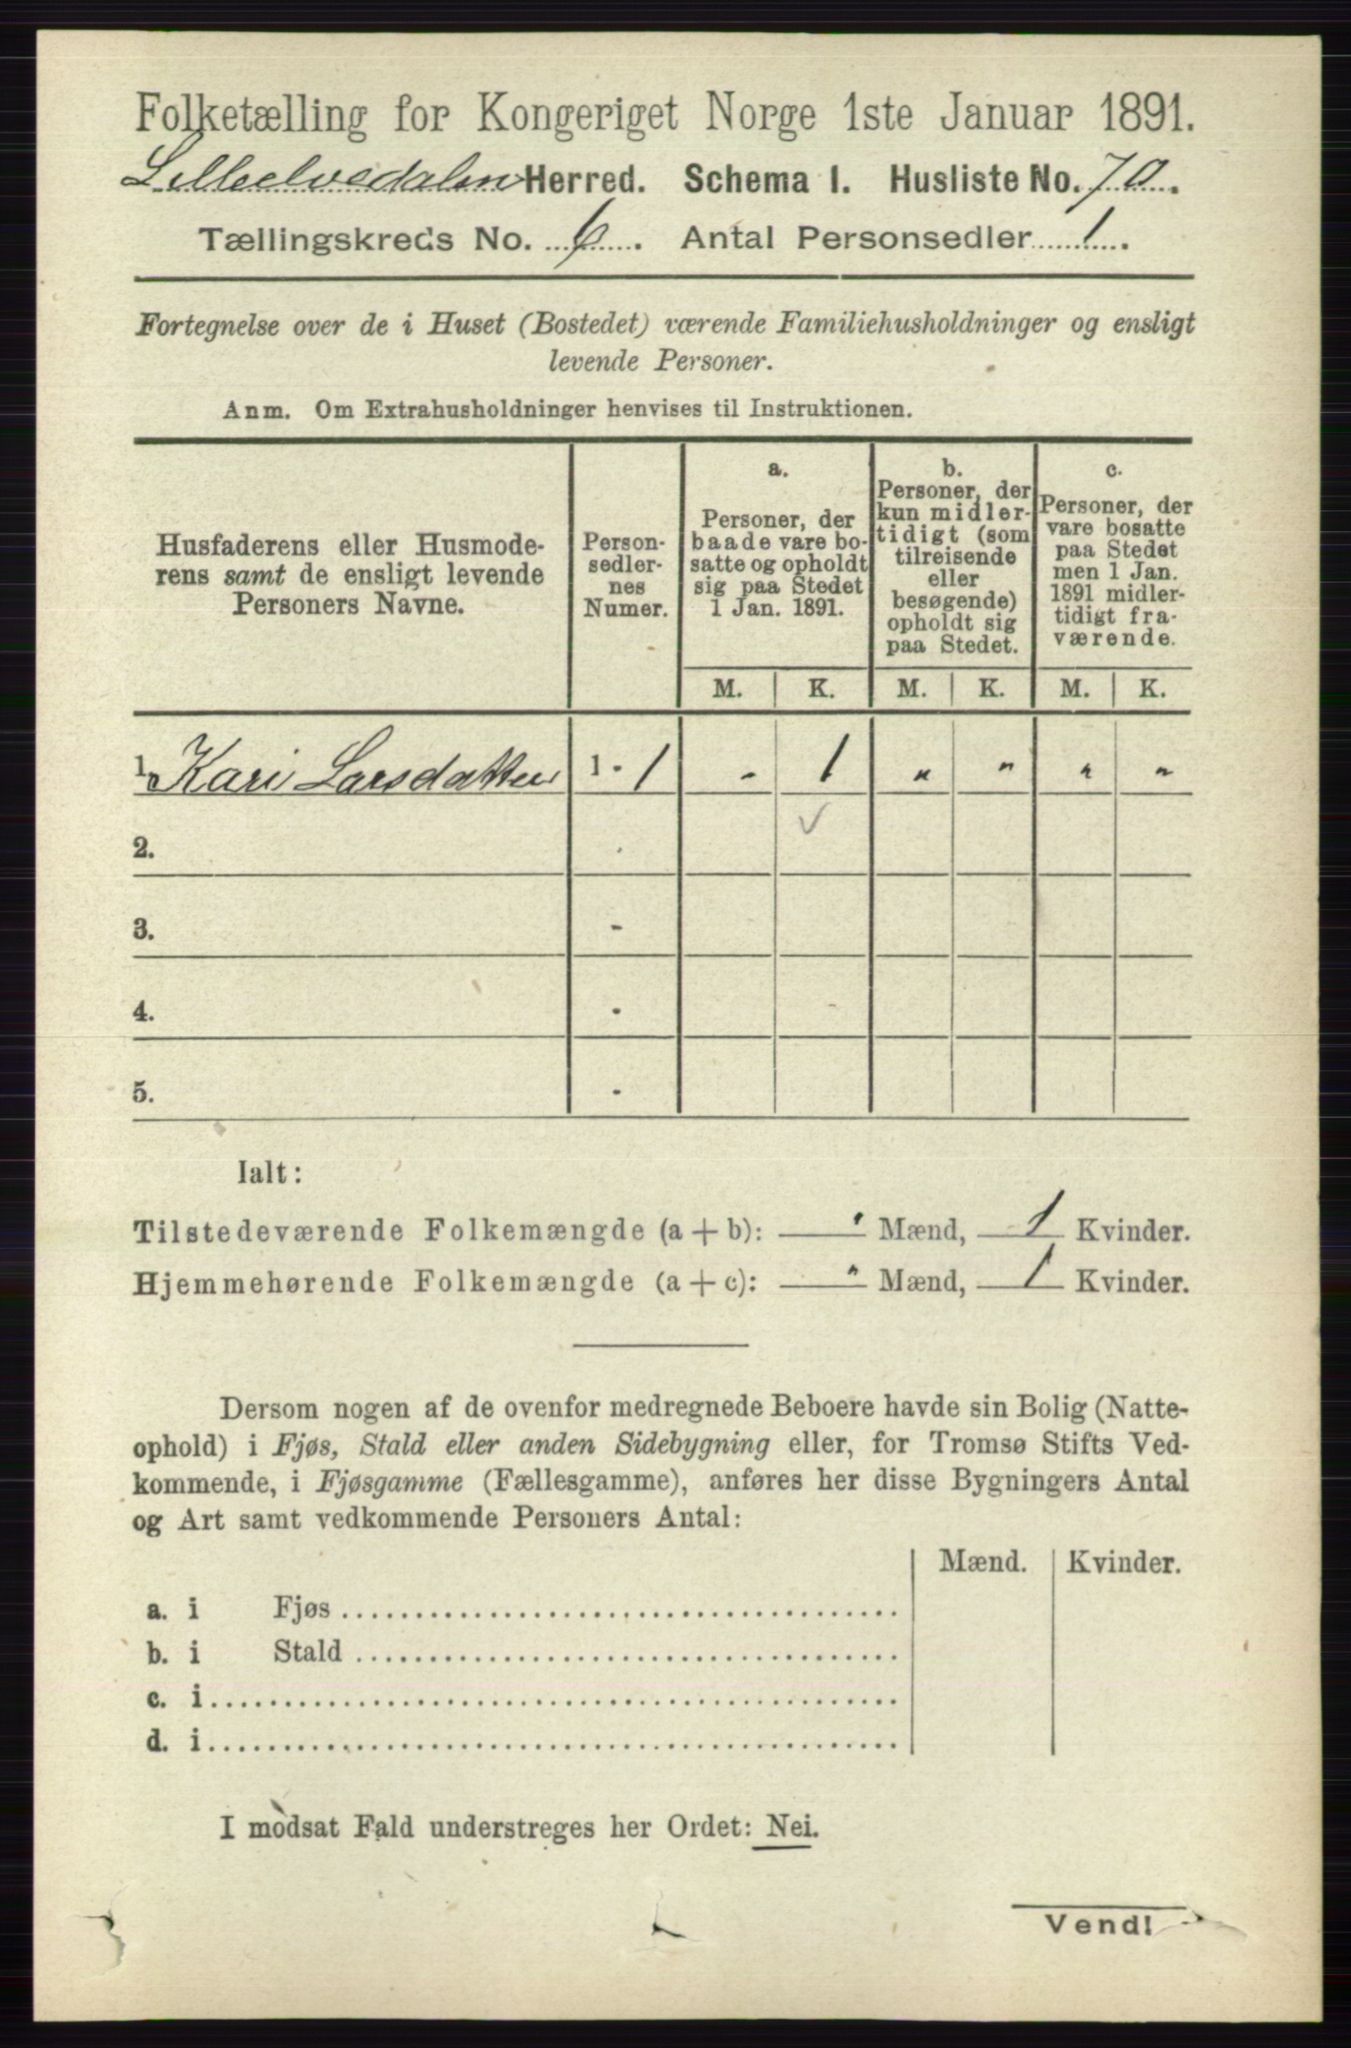 Folketælling for Kongeriget Norge 1ste Januar 1891.
Lilleelvedalen Herred. Schema I. Husliste No. 70.
Tællingskreds No. 6. Antal Personsedler 1.
Fortegnelse over de i Huset (Bostedet) værende Familiehusholdninger og ensligt
levende Personer.
Anm. Om Extrahusholdninger henvises til Instruktionen.
Husfaderens eller Husmode-
rens samt de ensligt levende
Personers Navne.
Person-
sedler-
nes
Numer.
a.
Personer, der
baade vare bo-
satte og opholdt
sig paa Stedet
1 Jan. 1891.
b.
Personer, der
kun midler-
tidigt (som
tilreisende
eller
besøgende)
opholdt sig
paa Stedet.
c.
Personer, der
vare bosatte
paa Stedet
men 1 Jan.
1891 midler-
tidigt fra-
værende.
M. K. M. K. M. K.
1. Kari Larsdatter 1 - 1 - 1 " " " "
2. -
3. -
4. -
5. -
Ialt:
Tilstedeværende Folkemængde (a + b): " Mænd, 1 Kvinder.
Hjemmehørende Folkemængde (a + c): " Mænd, 1 Kvinder.
Dersom nogen af de ovenfor medregnede Beboere havde sin Bolig (Natte-
ophold) i Fjøs, Stald eller anden Sidebygning eller, for Tromsø Stifts Ved-
kommende, i Fjøsgamme (Fællesgamme), anføres her disse Bygningers Antal
og Art samt vedkommende Personers Antal:
Mænd. Kvinder.
a. i Fjøs
b. i Stald
c. i
d. i
I modsat Fald understreges her Ordet: Nei.
Vend!